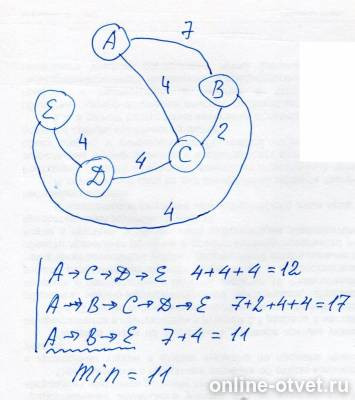 A
7
B
4
E
2
C
4
D
4
4
A→C→D→E 4+4+4=12
A→B→C→D→E 7+2+4+4=17
A→B→E 7+4=11
min=11
online-otvet.ru